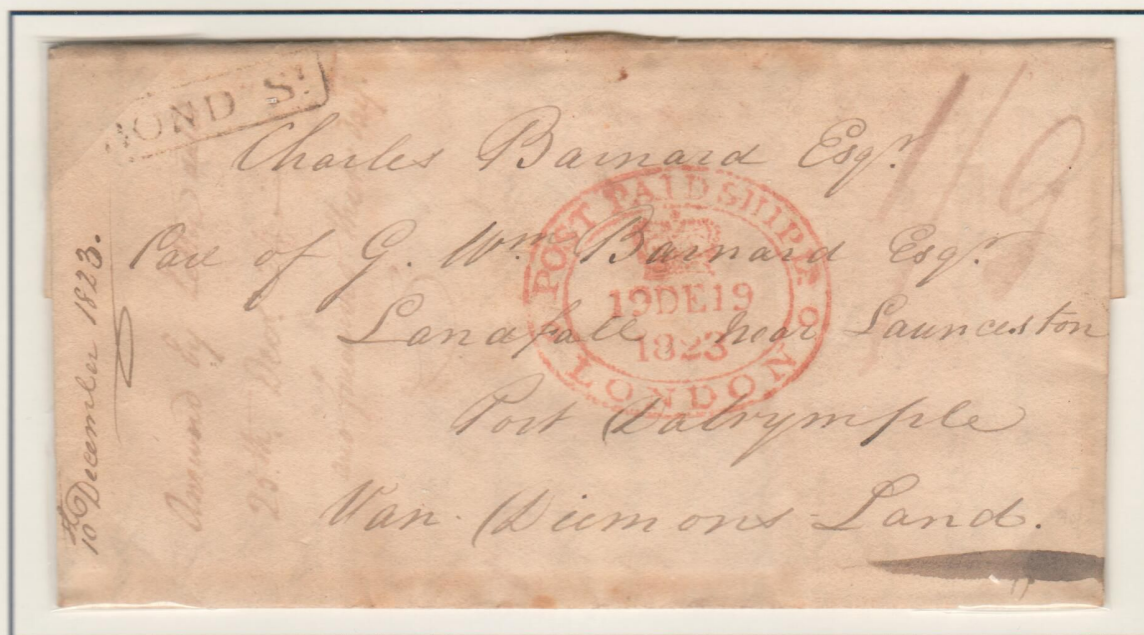 BOND St
Charles Barnard Esqr.
Care of G. Wm Barnard Esqr.
Landfall near Launceston
Port Dalrymple
Van Diemons Land.
POST PAID SHIP L
19DE19
1823
LONDON
1/9
10 December 1823.
Answered by
25th Decr.